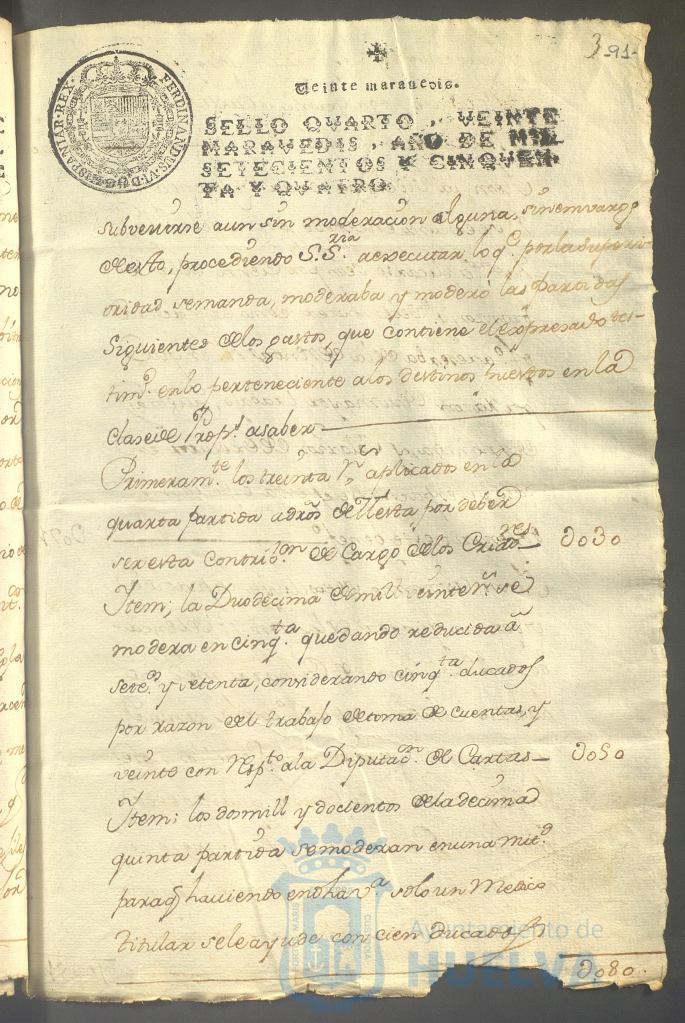 391.
Veinte maravedis.
FERDINANDUS.VI.D.G. HISPANIAR.REX.
SELLO QVARTO, VEINTE
MARAVEDIS, AÑO DE MIL
SETECIENTOS Y CINQVEN-
TA Y QVATRO.
subvenirse aun sin moderacion alguna, sin emvargo
de esto, procediendo S.Sria a executar lo q.e por la superi-
oridad se manda, moderaba y moderó las partidas
siguientes de los gastos, que contiene el expresado tes-
tim.o en lo perteneciente a los destinos puestos en la
clase de Prop.s a saber
Primeram.te los treinta r.s aplicados en la
quarta partida a dros de Mesta por deber
ser esta contrib.on de cargo de los Criad.res 3030
Item; la Duodecima de mill veinte r.s se
modera en cinq.ta quedando reducida a
sete.s y setenta, considerando cinq.ta ducados
por razon del trabajo de toma de cuentas, y
veinte con Resp.to a la Diputa.on de Cartas 3050
Item; los dos mill y docientos de la decima
quinta partida se moderan en una mit.d
para q haviendo en dha v.a solo un Medico
titular se le ayude con cien ducados
3080.
Ayuntamiento de
HUELVA